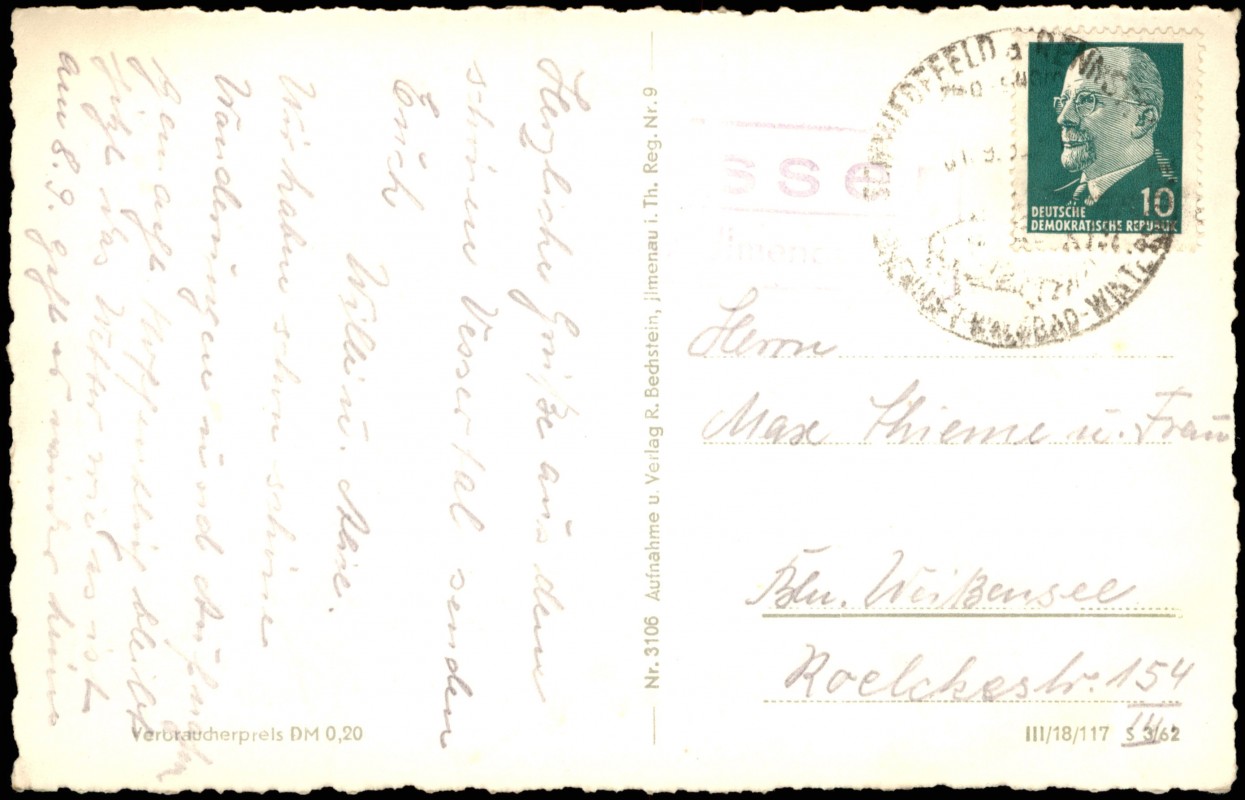 Herzliche Grüße aus dem
schönen Vessertal senden
Erich
Willi u. Aline.
Wir haben schon schöne
Wanderungen und
Hoffentlich bleibt
jetzt das Wetter wie es ist
am 8.9. geht es wieder heim
Verbraucherpreis DM 0,20
Nr. 3106 Aufnahme u. Verlag R. Bechstein, Jlmenau i. Th. Reg. Nr. 9
SCHMIEDEFELD a. RENNST
DEUTSCHE
DEMOKRATISCHE REPUBLIK
10
Herrn
Max Thieme u. Frau
Bln. Weißensee
Roelckestr. 154
III/18/117 S 3/62